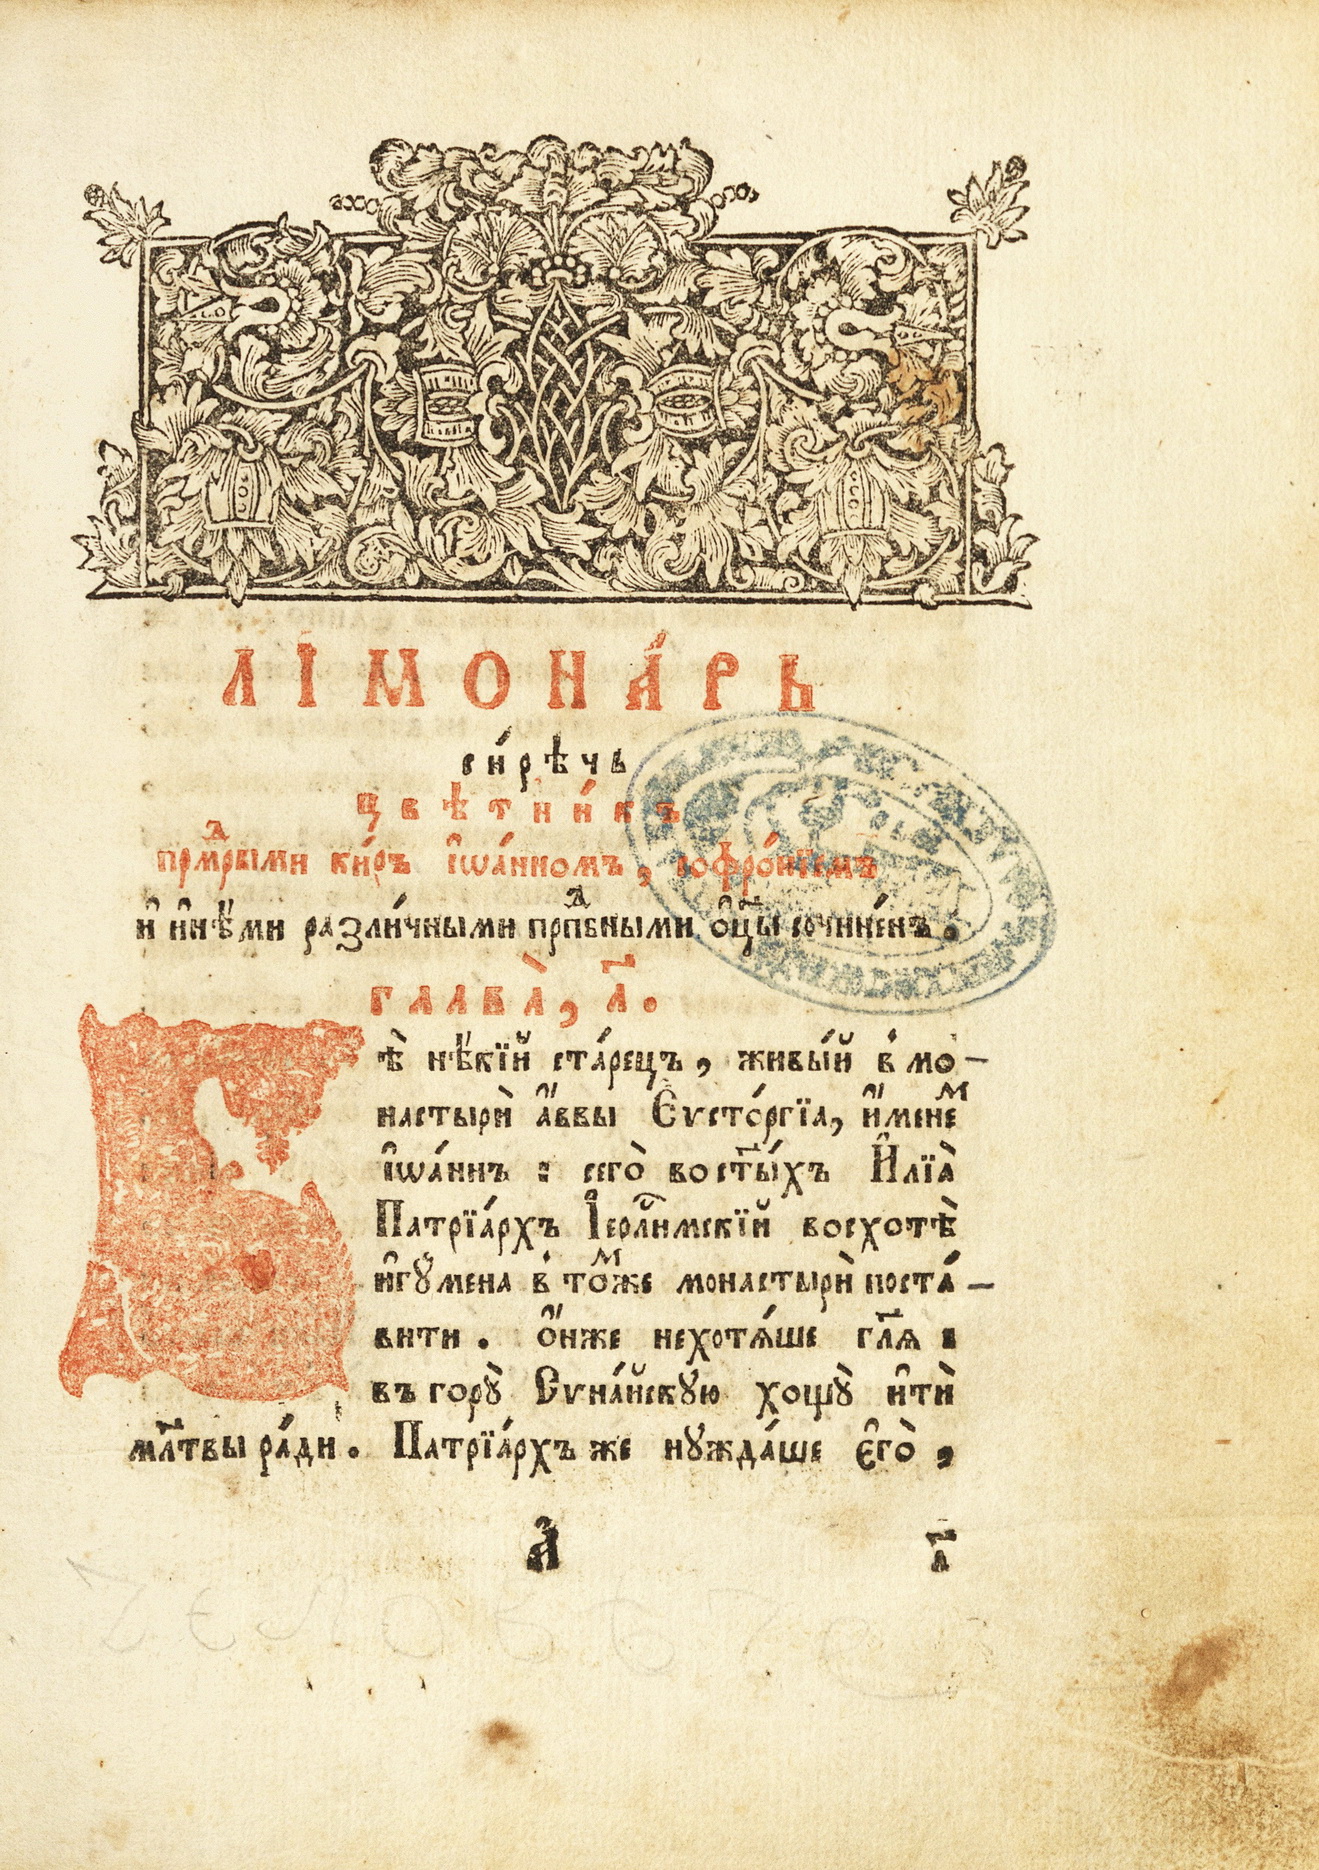 ЛІМОНА́РЬ
си́рѣчь
цвѣтни́къ
прмⷣрыми ки́ръ і҆ѡа́нномъ, софро́нїемъ
и҆ и҆нѣ́ми разли́чными прпⷣбными ѻ҆ц҃ы сочине́нъ.
глава̀, а҃.
Бѣ̀ нѣ́кїй ста́рецъ, живы́й в̾ мо-
настырѝ а҆́ввы Є҆ѵсто́ргїа, и҆́менеⷨ
і҆ѡа́ннъ : сего̀ во ст҃ы́хъ И҆лїа̀
Патрїа́рхъ І҆ерⷭ҇ли́мскїй восхотѣ̀
и҆гꙋ́мена в̾ тоⷨже монастырѝ поста́-
вити. Ѻ҆́нже нехотѧ́ше гл҃я :
въ горꙋ̀ Сѵна́йскꙋю хощꙋ̀ и҆тѝ
мл҃твы ра́ди. Патрїа́рхъ же нꙋжда́ше є҆го̀,
А҆ а҃